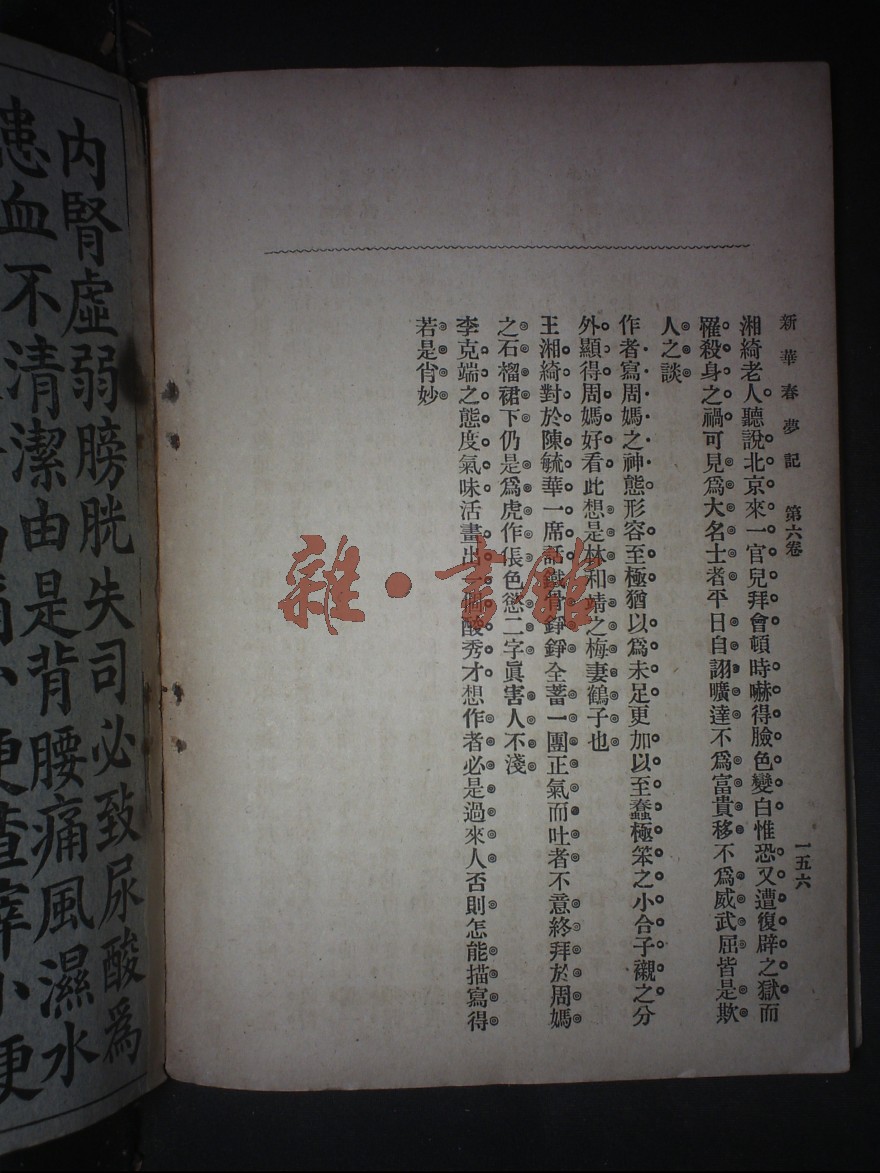 新華春夢記 第六卷 一五六
湘綺老人聽說北京來一官兒拜會頓時嚇得臉色變白惟恐又遭復辟之獄而
罹殺身之禍可見爲大名士者平日自詡曠達不爲富貴移不爲威武屈皆是欺
人之談
作者寫周媽之神態形容至極猶以爲未足更加以至蠢極笨之小合子襯之分
外顯得周媽好看此想是林和靖之梅妻鶴子也
王湘綺對於陳毓華一席話鐵骨錚錚全蓄一團正氣而吐者不意終拜於周媽
之石榴裙下仍是爲虎作倀色慾二字眞害人不淺
李克端之態度氣味活畫出一個酸秀才想作者必是過來人否則怎能描寫得
若是肖妙
雜·書館
內腎虛弱膀胱失司必致尿酸爲
患血不清潔由是背腰痛風濕水
便